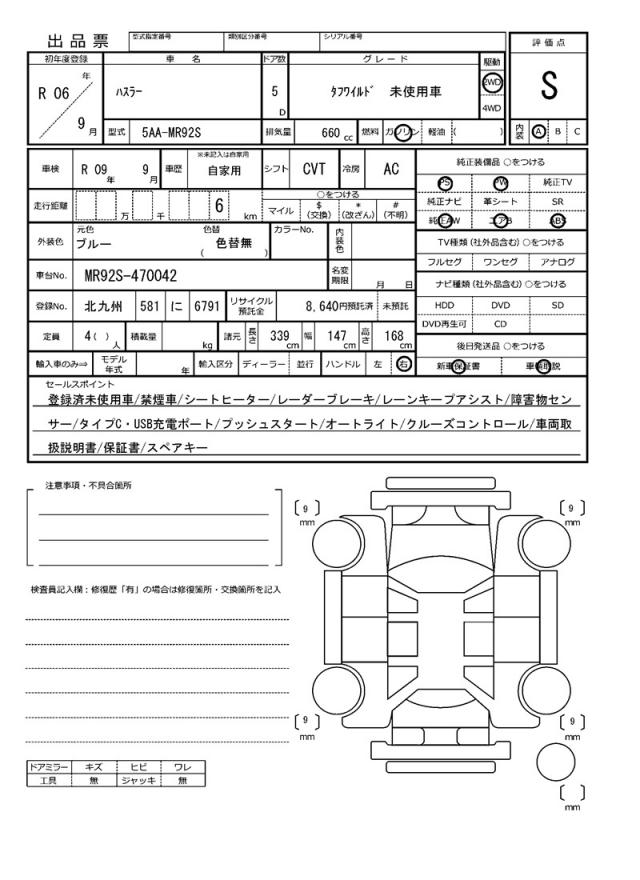 出品票 型式指定番号 類別区分番号 シリアル番号
初年度登録 車名 ドア数 グレード 駆動 評価点
R 06 年 9 月 ハスラー 5 D タフワイルド 未使用車 2WD 4WD S
型式 5AA-MR92S 排気量 660 cc 燃料 ガソリン 軽油 ( ) 内装 A B C
車検 R 09 年 9 月 車歴 ※未記入は自家用 自家用 シフト CVT 冷房 AC 純正装備品 ○をつける
PS PW 純正TV
走行距離 万 千 6 km ○をつける 純正ナビ 革シート SR
マイル $ (交換) * (改ざん) # (不明) 純正AW エアB ABS
外装色 元色 ブルー 色替 ( 色替無 ) カラーNo. 内装色 TV種類 (社外品含む) ○をつける
フルセグ ワンセグ アナログ
車台No. MR92S-470042 名変期限 月 日 ナビ種類 (社外品含む) ○をつける
登録No. 北九州 581 に 6791 リサイクル預託金 8,640円預託済 未預託 HDD DVD SD
DVD再生可 CD
定員 4( ) 人 積載量 kg 諸元 長さ 339 cm 幅 147 cm 高さ 168 cm 後日発送品 ○をつける
輸入車のみ⇒ モデル年式 年 輸入区分 ディーラー 並行 ハンドル 左 右 新車保証書 車輌取説
セールスポイント
登録済未使用車/禁煙車/シートヒーター/レーダーブレーキ/レーンキープアシスト/障害物セン
サー/タイプC・USB充電ポート/プッシュスタート/オートライト/クルーズコントロール/車両取
扱説明書/保証書/スペアキー
注意事項・不具合箇所
9 mm 9 mm
検査員記入欄:修復歴「有」の場合は修復箇所・交換箇所を記入
9 mm 9 mm
ドアミラー キズ ヒビ ワレ
工具 無 ジャッキ 無
mm